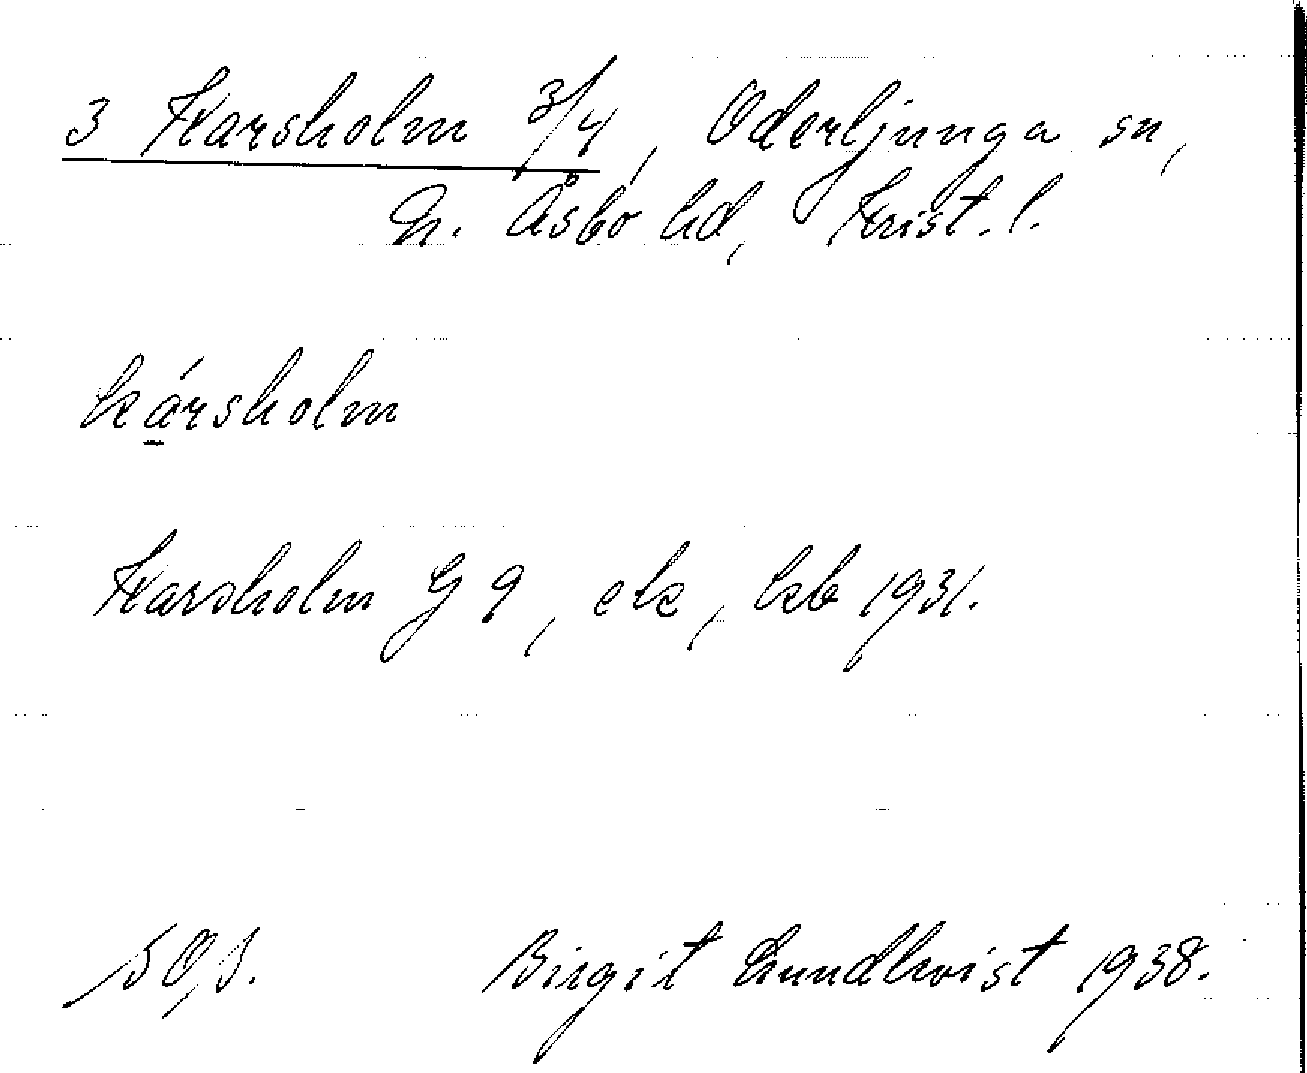 3 Karsholm 3/4, Oderljunga sn,
N. Åsbo hd, Krist. l.
kársholm
Karsholm G 9, ek, kb 1931.
Birgit Lundkvist 1938.